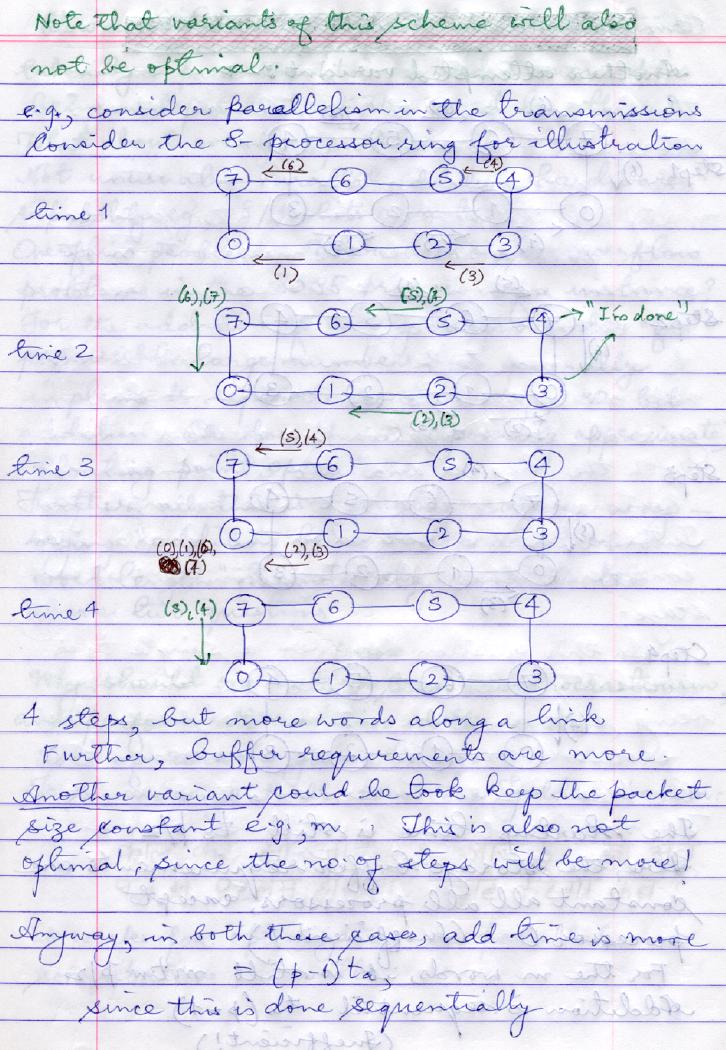 Note that variants of this scheme will also
not be optimal.
e.g., consider parallelism in the transmissions
Consider the 8-processor ring for illustration
(6) (4)
7 6 5 4
time 1
0 1 2 3
(1) (3)
(6),(7) (5),(4)
7 6 5 4 "I'm done"
time 2
0 1 2 3
(2),(3)
(5),(4)
time 3 7 6 5 4
0 1 2 3
(0),(1),(6), (2),(3)
(7)
time 4 (5),(4) 7 6 5 4
0 1 2 3
4 steps, but more words along a link
Further, buffer requirements are more.
Another variant could be to keep the packet
size constant e.g., m. This is also not
optimal, since the no. of steps will be more!
Anyway, in both these cases, add time is more
= (p-1)ta,
since this is done sequentially